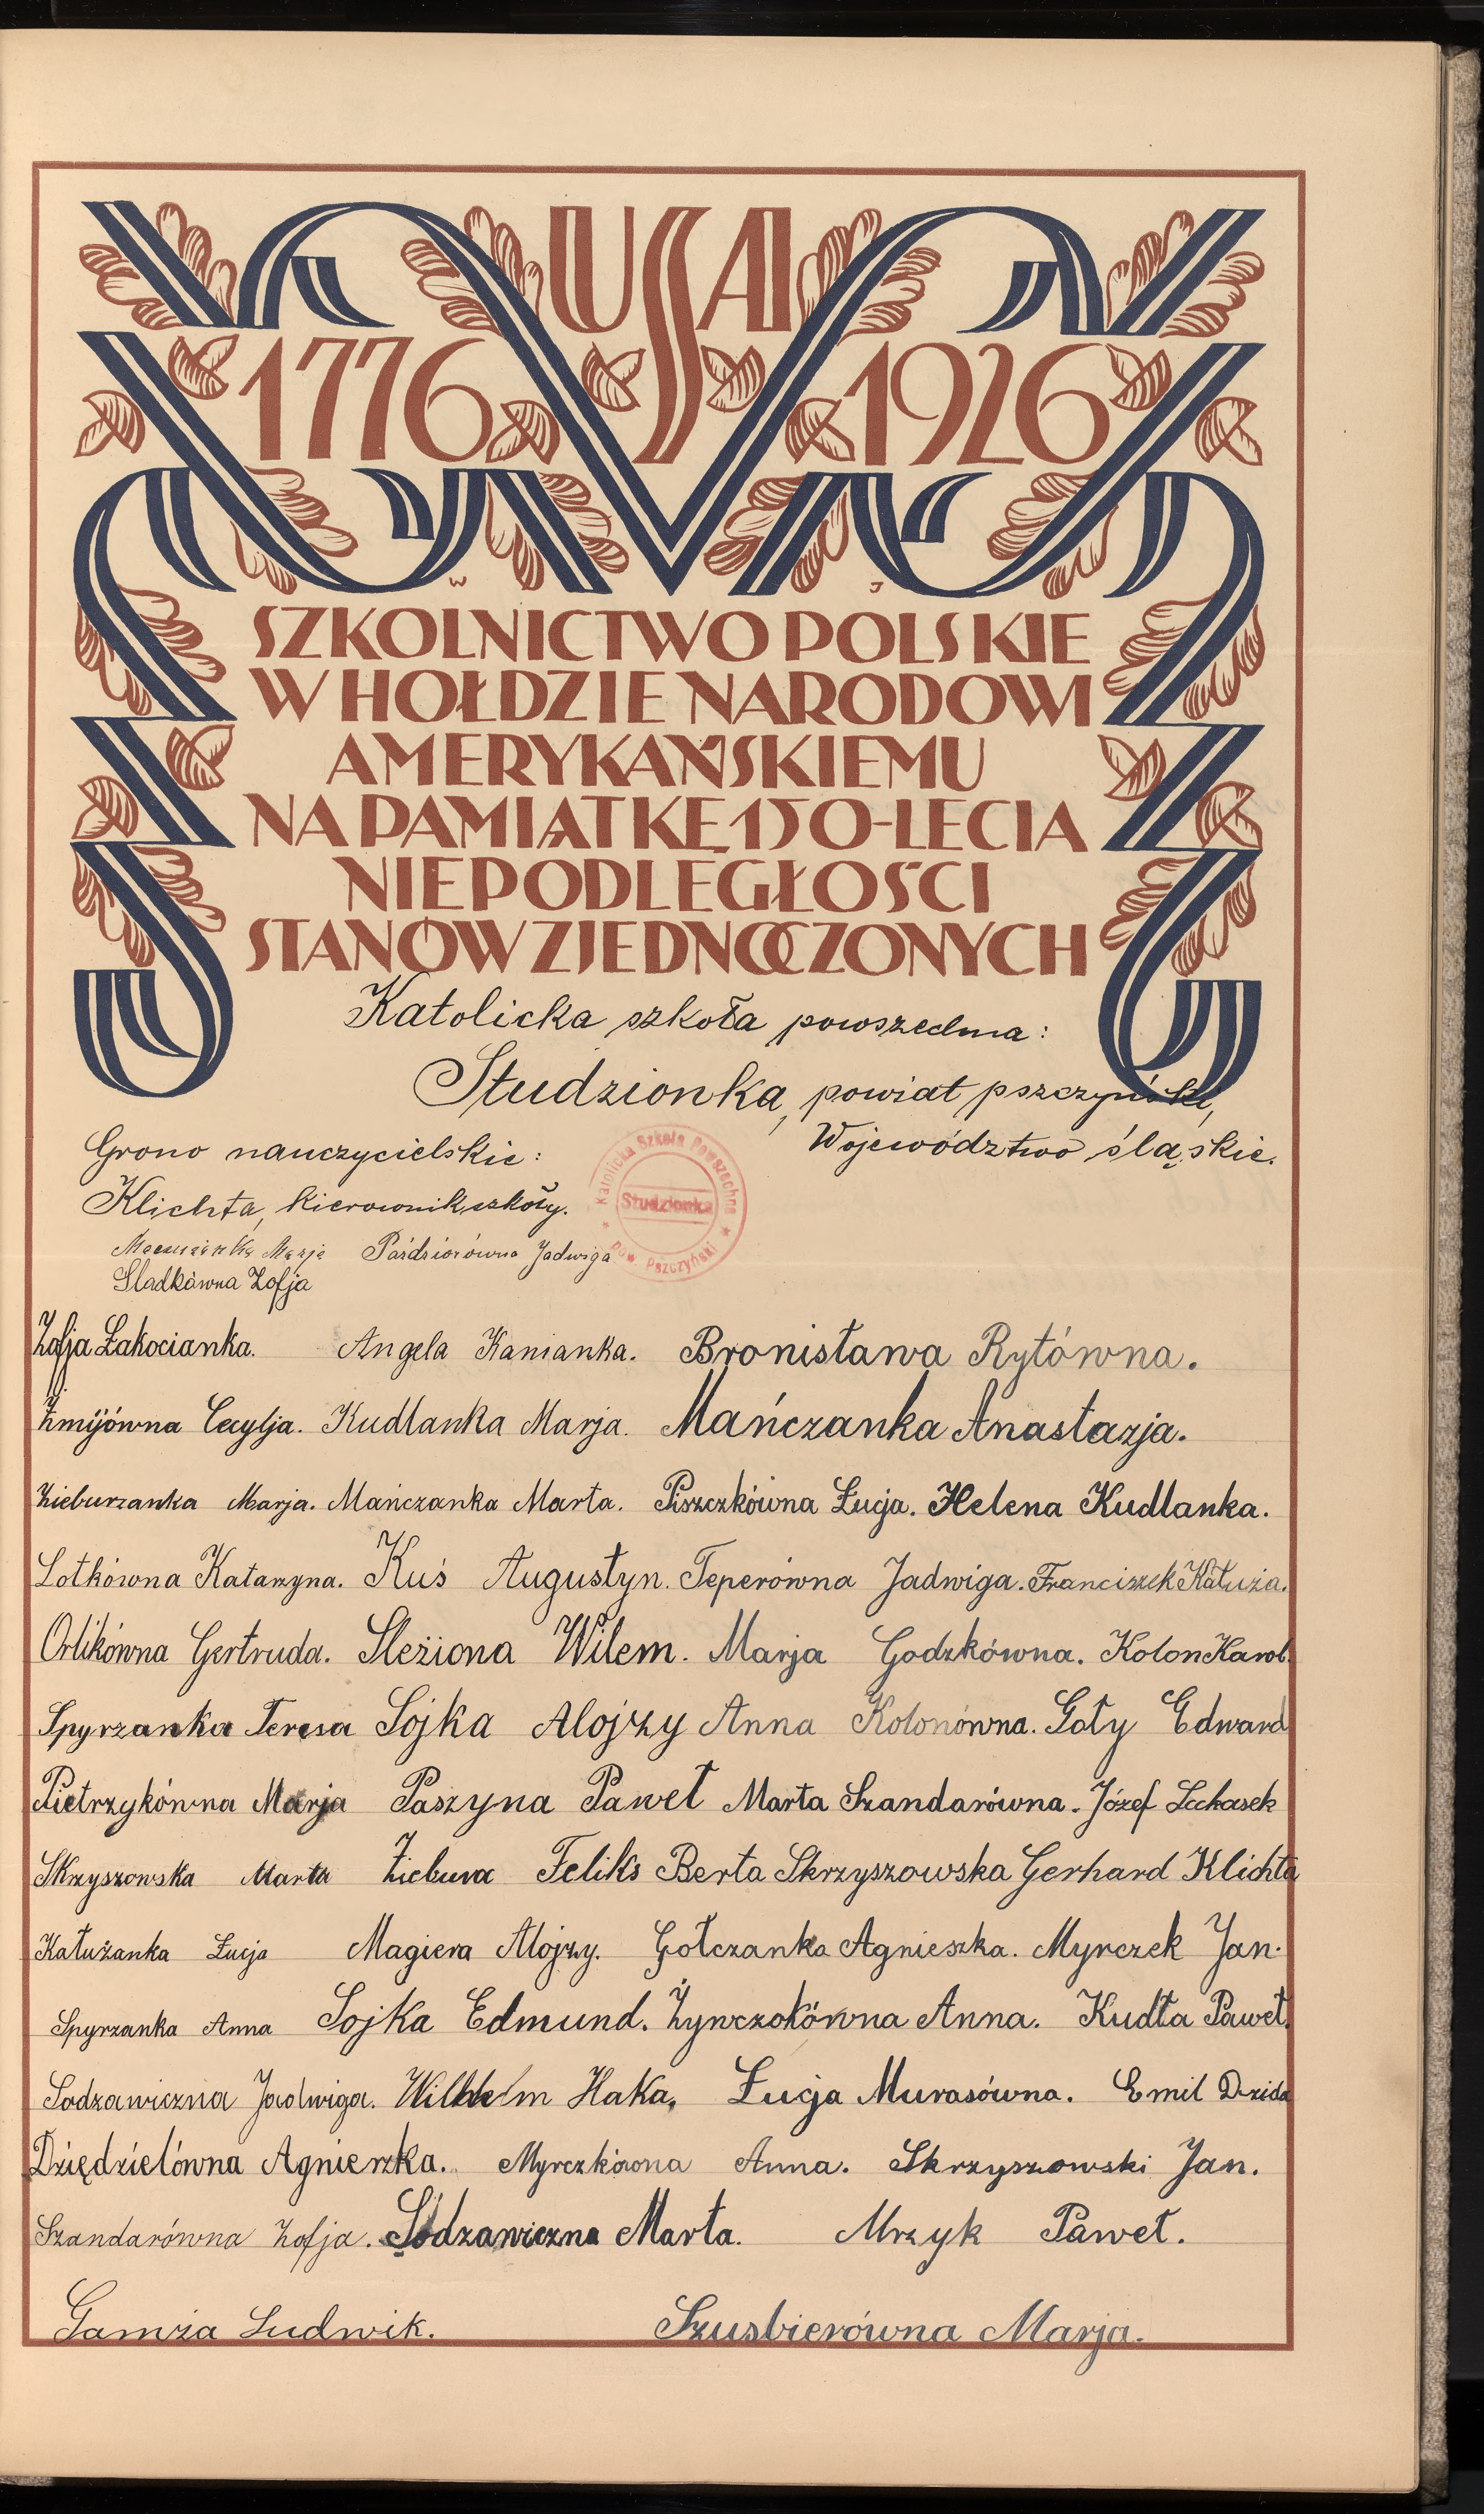 USA
1776 1926
W J
SZKOLNICTWO POLSKIE
W HOŁDZIE NARODOWI
AMERYKAŃSKIEMU
NA PAMIĄTKĘ 150-LECIA
NIEPODLEGŁOŚCI
STANÓW ZJEDNOCZONYCH
Katolicka szkoła powszechna:
Studzionka, powiat pszczyński,
Województwo śląskie.
Grono nauczycielskie:
Klichta, kierownik szkoły.
Katolicka Szkoła Powszechna
Studzionka
Pow. Pszczyński
Marja Paździorówna Jadwiga
Sladkówna Zofja
Zofja Łakocianka. Angela Kanianka. Bronisława Rytówna.
Żmijówna Cecylja. Kudlanka Marja. Mańczanka Anastazja.
Zieburzanka Marja. Mańczanka Marta. Piszczkówna Łucja. Helena Kudlanka.
Lotkówna Katarzyna. Kuś Augustyn. Teperówna Jadwiga. Franciszek Kałuża.
Orlikówna Gertruda. Sleżiona Wilem. Marja Godzkówna. Kolon Karol.
Spyrzanka Teresa Sojka Alojzy Anna Kolonówna. Goły Edward
Pietrzykówna Marja Paszyna Paweł Marta Szandarówna. Józef Luckasek
Skrzyszowska Marta Ziebura Feliks Berta Skrzyszowska Gerhard Klichta
Kałużanka Łucja Magiera Alojzy. Gołczanka Agnieszka. Myrczek Jan.
Spyrzanka Anna Sojka Edmund. Żywczokówna Anna. Kudła Paweł.
Sodzawiczna Jadwiga. Wilhelm Haka. Łucja Murasówna. Emil Dzida
Dziędzielówna Agnieszka. Myrczkówna Anna. Skrzyszowski Jan.
Szandarówna Zofja. Sodzawiczna Marta. Mrzyk Paweł.
Gamża Ludwik. Szusbierówna Marja.